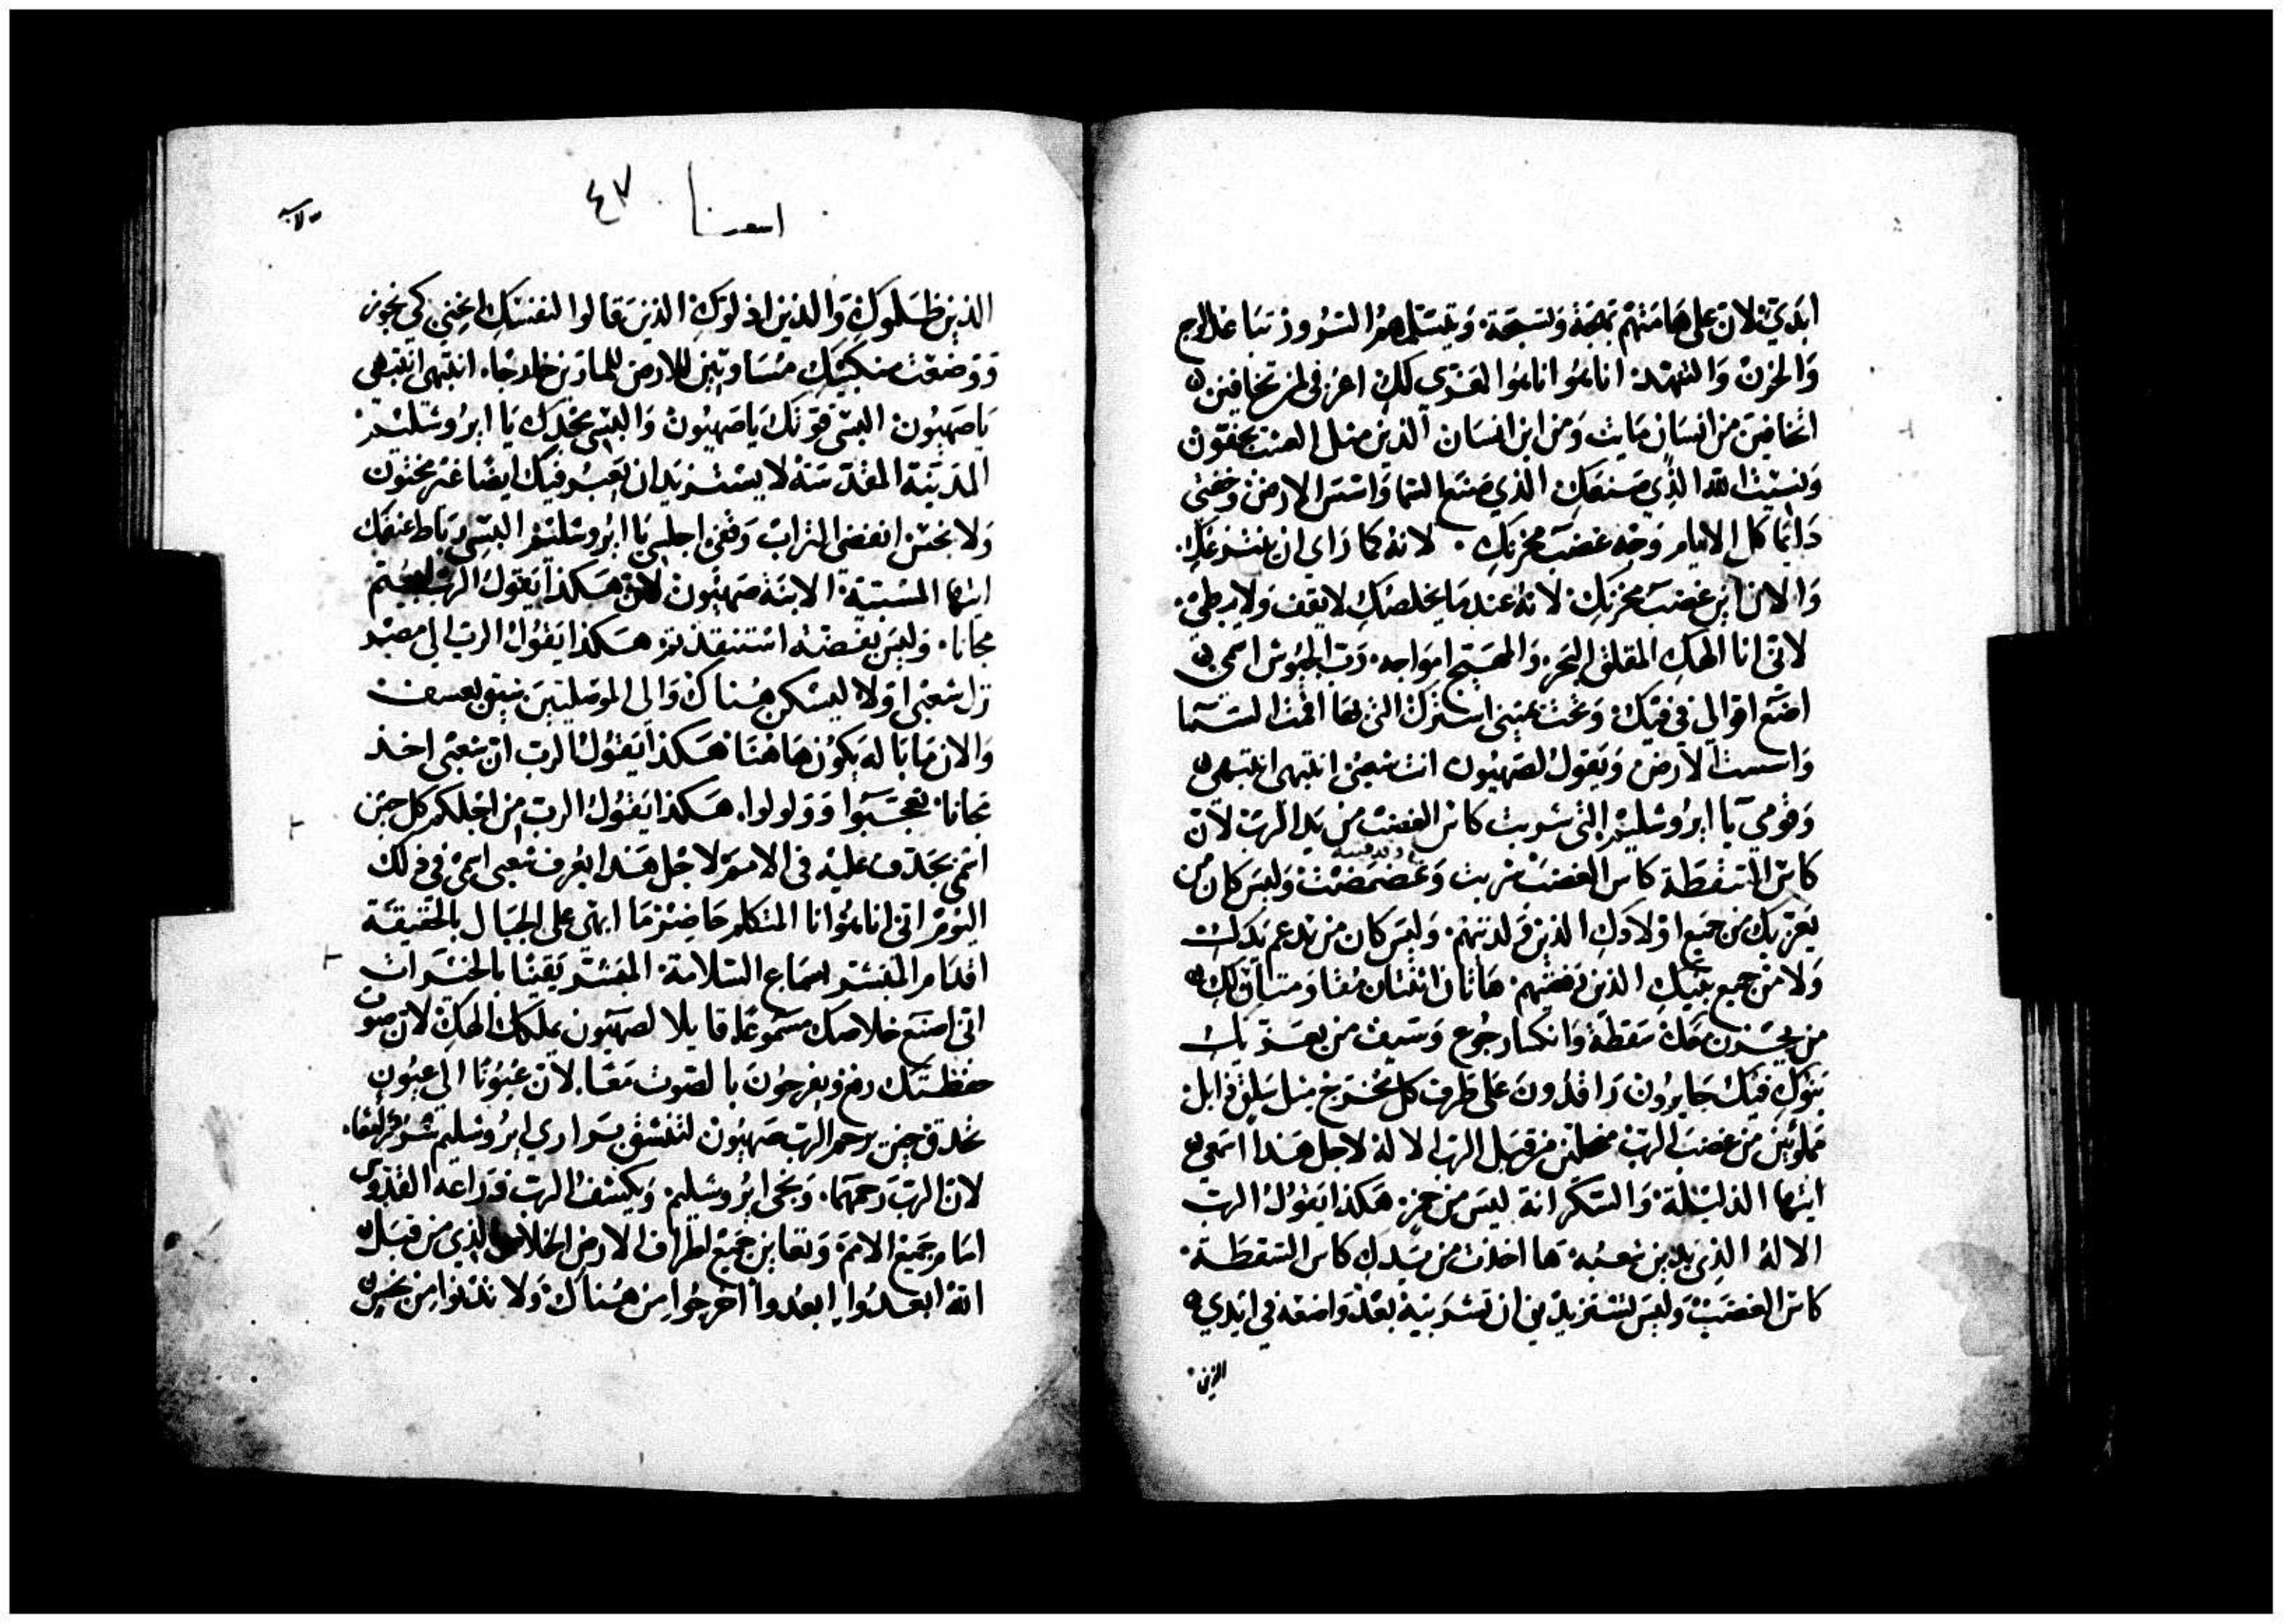 ابدي لان على هامتهم بهجة وتسبحة وتيسلمهم السرور تباعد الوجع
والحزن والتنهد انا هو انا هو المعزي لك اعرفي لمن تخافين
اتخافين من انسان مايت ومن ابن انسان الذين مثل العشب يجفون
ونسيت الله الذي صنعك الذي صنع السما واسس الارض وخفتي
دائما كل الايام وجه غضب محزنك لانه كما راي ان ينتزعك
والان اين غضب محزنك لانه عندما يخلصك لا يقف ولا يبطي
لاني انا الهك المقلق البحر والمهيج امواجه رب الجيوش اسمي
اضع اقوالي في فيك وتحت يدي استرك التي بها اقمت السما
واسست الارض ويقول لصهيون انت شعبي انتبهي انتبهي
وقومي يا ايروشليم التي شربت كاس الغضب من يد الرب لان
كاس السقطة كاس الغضب شربت وغضمضت وليس كان من
يعزيك من جميع اولادك الذين ولدتهم وليس كان من يدعم يدك
ولا من جميع بنيك الذين رفعتهم هاتان اثنتان مقاومتان لك
من يحزن معك سقطة وانكسار جوع وسيف من يعزيك
بنوك فيك حايرون راقدون على طرف كل مخرج مثل سلق ذابل
مملوئين من غضب الرب منحلين من قبل الرب الاله لاجل هذا اسمعي
ايتها الذليلة والسكرانة ليس من خمر هكذا يقول الرب
الاله الذي يدين شعبه ها اخذت من يدك كاس السقطة
كاس الغضب وليس تستزيدين ان تشربيه بعد واضعه في ايدي
الذين
اشعيا ٤٧
الذين ظلموك والذين اذلوك الذين قالوا لنفسك انحني كي نجوز
ووضعت منكبيك مساويين للارض للمارين خارجا انتبهي انتبهي
يا صهيون البسي قوتك يا صهيون والبسي مجدك يا ايروشليم
المدينة المقدسة لا يستزيد ان يعبر فيك ايضا غير مختون
ولا نجس انفضي التراب وقفي اجلسي يا ايروشليم البسي رباط عنقك
ايتها المسبية الابنة صهيون لان هكذا يقول الرب ابيعتم
مجانا وليس بفضة استنقذتم هكذا يقول الرب الى مصر
نزل شعبي اولا ليسكن هناك والى الموصليين سيق بعسف
والان ما باله يكون هاهنا هكذا يقول الرب ان شعبي اخذ
مجانا تعجبوا وولولوا هكذا يقول الرب من اجلكم كل حين
اسمي يجدف عليه في الامم لاجل هذا يعرف شعبي اسمي في ذلك
اليوم اني انا هو انا المتكلم حاضر ما ابهى على الجبال بالحقيقة
اقدام المبشر سماع السلامة المبشر يقينا بالخيرات
اني اصنع خلاصك مسموعا قايلا لصهيون يملك الهك لان صوت
حفظتك رفع ويفرحون بالصوت معا لان عيونا الى عيون
تحدق حين يرحم الرب صهيون لتنشق براري ايروشليم سرورا معا
لان الرب رحمها ونجى ايروشليم ويكشف الرب ذراعه القدوس
امام جميع الامم وتعاين جميع اطراف الارض الخلاص الذي من قبل
الله ابعدوا ابعدوا اخرجوا من هناك ولا تدنوا من نجس